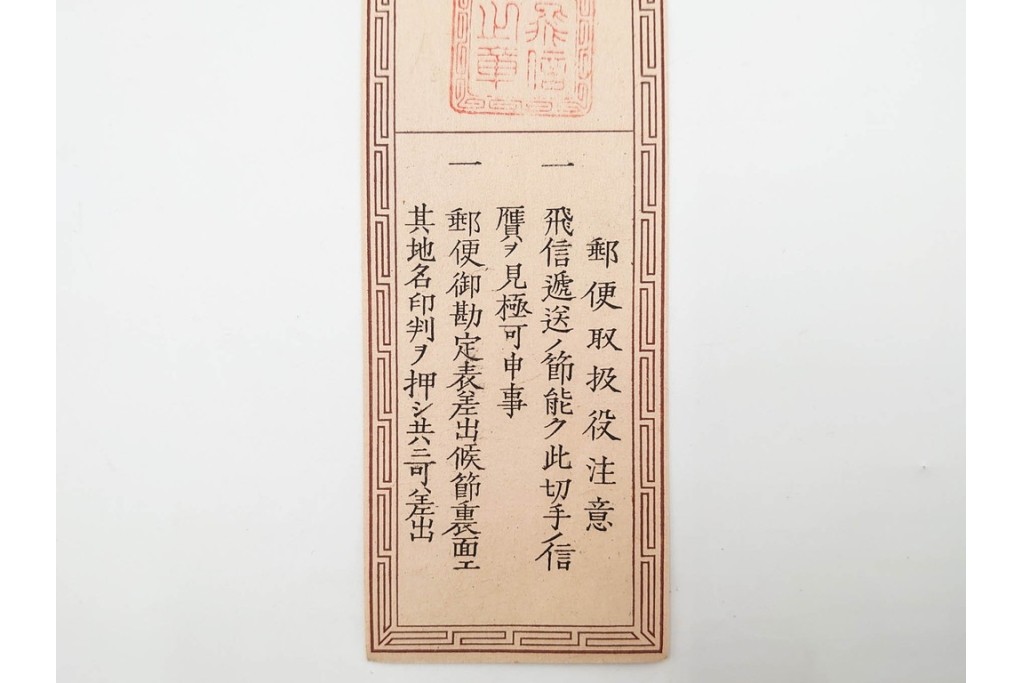 飛信
之章
郵便取扱役注意
一 飛信遞送ノ節能ク此切手ノ信
贋ヲ見極可申事
一 郵便御勘定表差出候節裏面エ
其地名印判ヲ押シ共ニ可差出